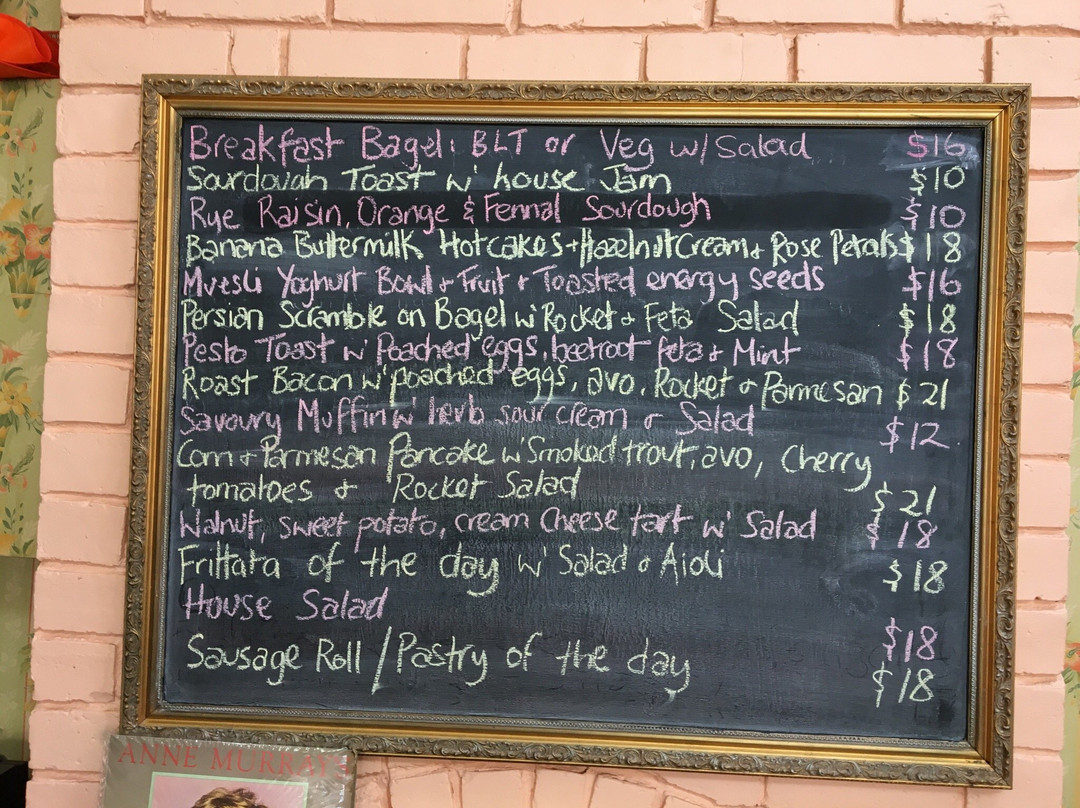 Breakfast Bagel: BLT or Veg w/ Salad $16
Sourdough Toast w' house Jam $10
Rye Raisin, Orange & Fennal Sourdough $10
Banana Buttermilk Hotcakes + Hazelnut Cream + Rose Petals $18
Muesli Yoghurt Bowl + Fruit + Toasted energy seeds $16
Persian Scramble on Bagel w' Rocket + Feta Salad $18
Pesto Toast w' Poached eggs, beetroot feta + Mint $18
Roast Bacon w' poached eggs, avo, Rocket + Parmesan $21
Savoury Muffin w' herb sour cream + Salad $12
Corn + Parmesan Pancake w' Smoked trout, avo, Cherry
tomatoes + Rocket Salad $21
Walnut, sweet potato, cream Cheese tart w' Salad $18
Frittata of the day w' Salad + Aioli $18
House Salad $18
Sausage Roll / Pastry of the day $18
ANNE MURRAY'S